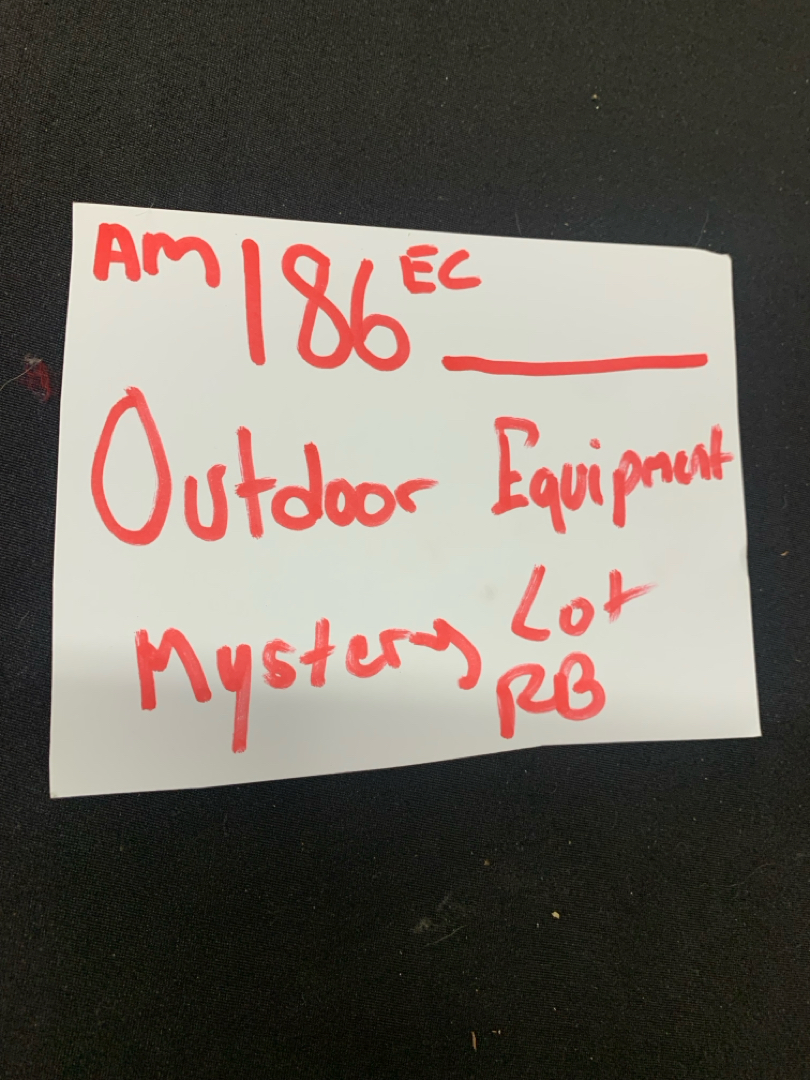 AM 186 EC ______
Outdoor Equipment
Mystery Lot
RB